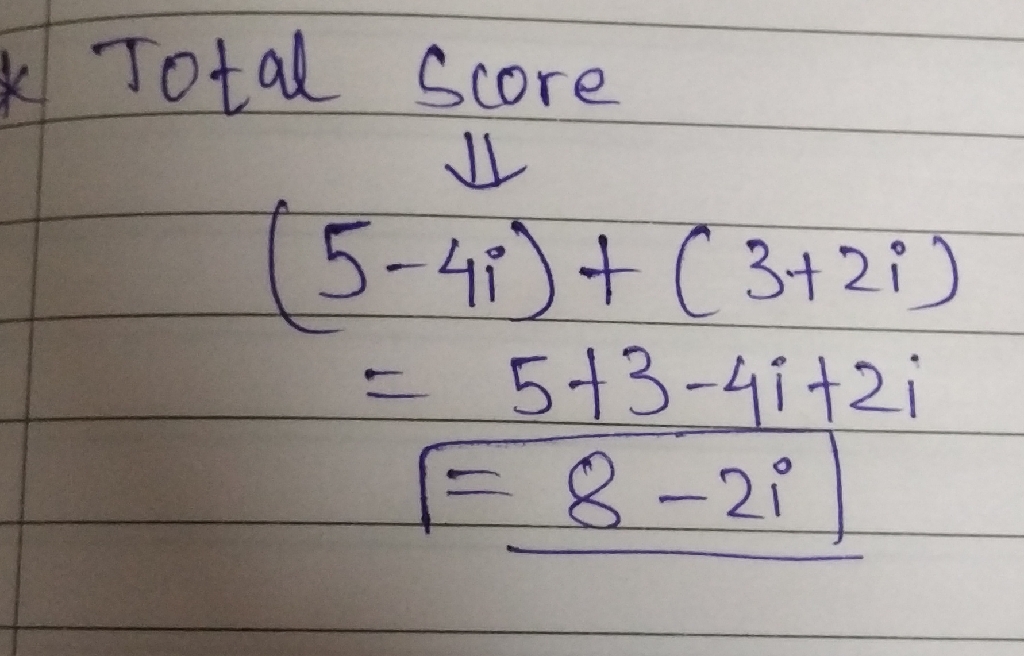 * Total Score
⇓
(5-4i) + (3+2i)
= 5+3-4i+2i
= 8-2i